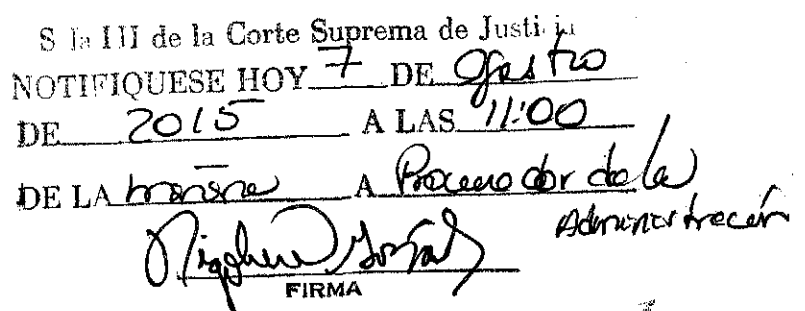 Sala III de la Corte Suprema de Justicia
NOTIFIQUESE HOY 7 DE Agosto
DE 2015 A LAS 11:00
DE LA mañana A Procurador de la
Administración
FIRMA